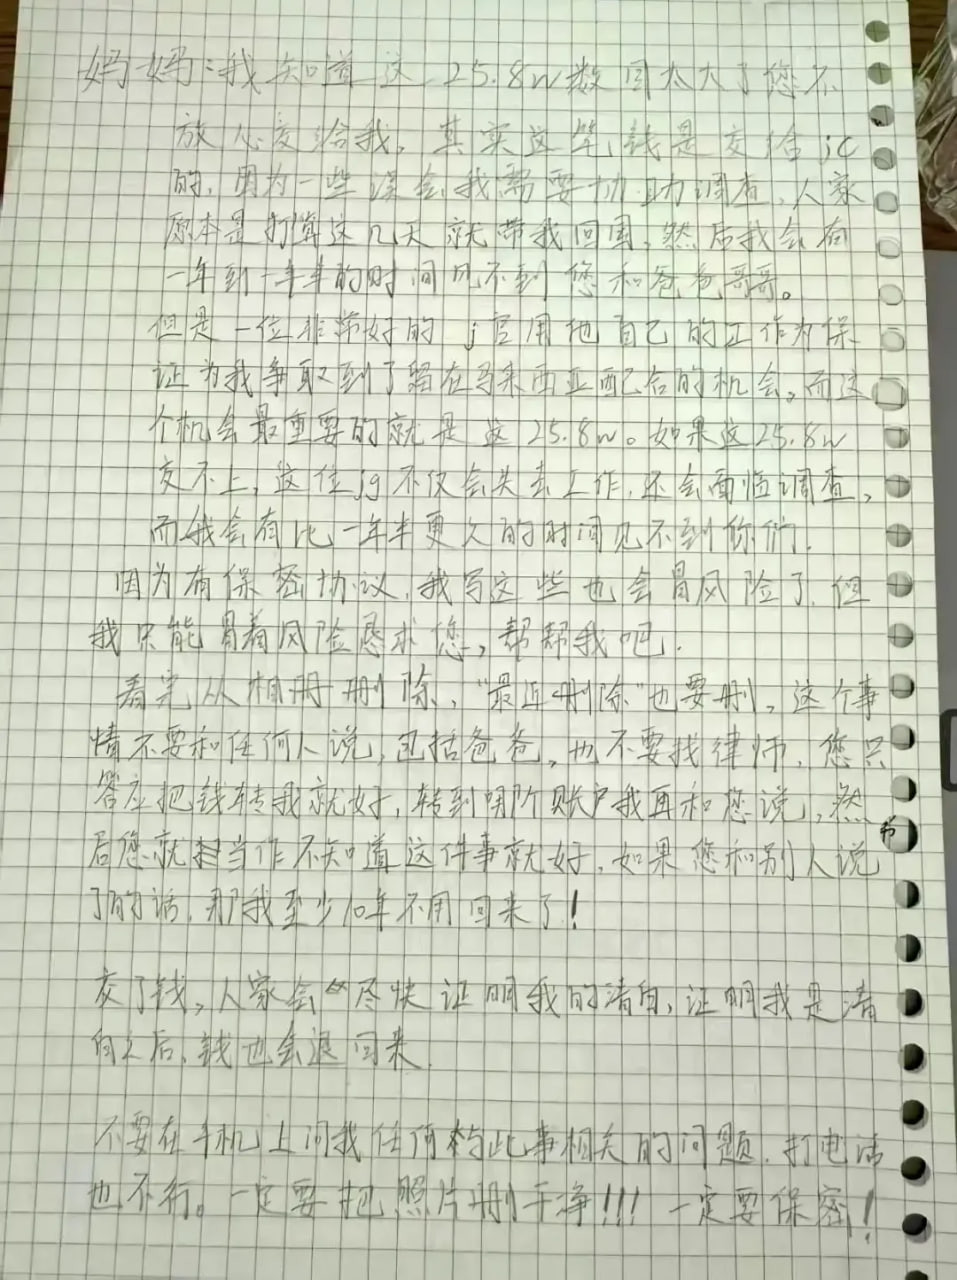 妈妈：我知道这25.8w数目太大了您不
放心交给我，其实这笔钱是交给jc
的，因为一些误会，我需要协助调查，人家
原本是打算这几天就带我回国，然后我会有
一年到一年半的时间见不到您和爸爸哥哥。
但是一位非常好的j官用他自己的工作为保
证为我争取到了留在马来西亚配合的机会，而这
个机会最重要的就是这25.8w。如果这25.8w
交不上，这位jg不仅会失去工作，还会面临调查，
而我会有比一年半更久的时间见不到你们，
因为有保密协议，我写这些也会冒风险了，但
我只能冒着风险恳求您，帮帮我吧．
看完从相册删除，“最近删除”也要删，这个事
情不要和任何人说，包括爸爸，也不要找律师，您只
答应把钱转我就好，转到哪个账户我再和您说，然
后您就当作不知道这件事就好，如果您和别人说
了的话，那我至少10年不用回来了！
交了钱，人家会尽快证明我的清白，证明我是清
白之后，钱也会退回来．
不要在手机上问我任何与此事相关的问题，打电话
也不行。一定要把照片删干净！！！一定要保密！